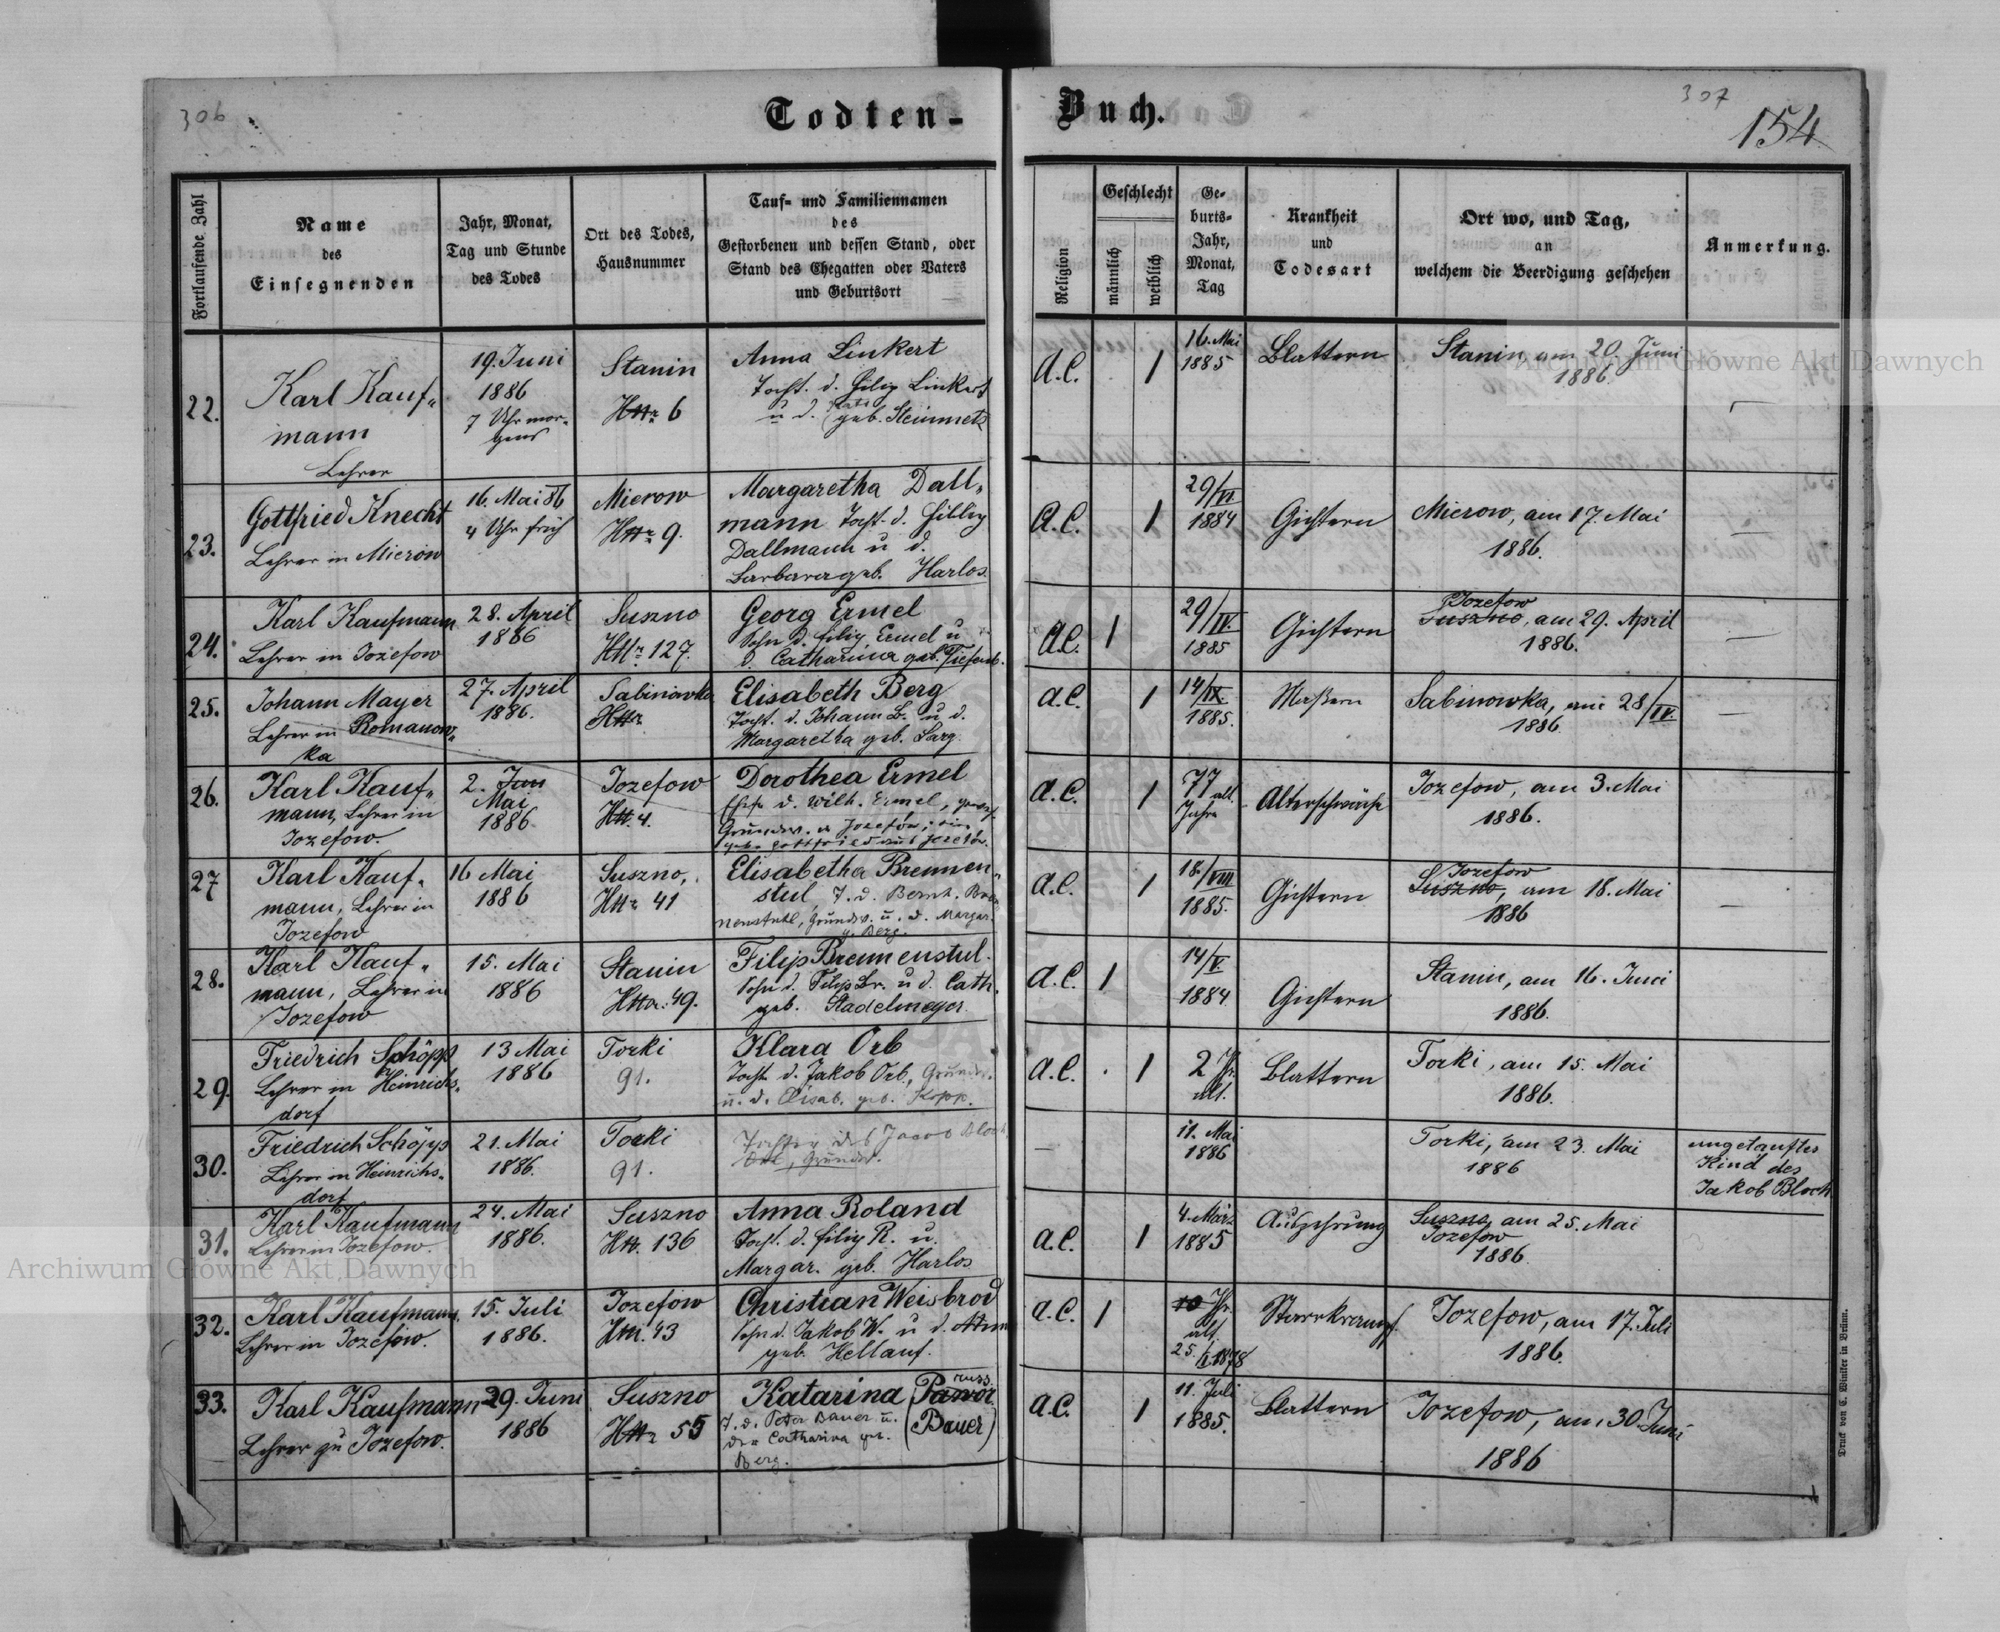 306
307
154
Todten-
Buch.
Fortlaufende Zahl
Name
des
Einsegnenden
Jahr, Monat,
Tag und Stunde
des Todes
Ort des Todes,
Hausnummer
Tauf- und Familiennamen
des
Gestorbenen und dessen Stand, oder
Stand des Ehegatten oder Vaters
und Geburtsort
Religion
Geschlecht
männlich
weiblich
Ge-
burts-
Jahr,
Monat,
Tag
Krankheit
und
Todesart
Ort wo, und Tag,
an
welchem die Beerdigung geschehen
Anmerkung.
22.
Karl Kauf-
mann
Lehrer
19. Juni
1886
7 Uhr mor-
gens
Stanin
6
Anna Linkert
Tocht. d. Filip Linkert
u d. geb. Steinmetz
A.C.
1
16. Mai
1885
Blattern
Stanin, am 20. Juni
1886.
23.
Gottfried Knecht
Lehrer in Mierow
16. Mai 86
4 Uhr früh
Mierow
9.
Margaretha Dall-
mann Tocht. d. Fillip
Dallmann u d.
Barbara geb. Harlos
A.C.
1
29/VI.
1884
Gichtern
Mierow, am 17. Mai
1886.
24.
Karl Kaufmann
Lehrer in Jozefow
28. April
1886
Suszno
127.
Georg Ermel
Sohn d. Filip Ermel u
d. Catharina geb. Tiefenb.
A.C.
1
29/IV.
1885
Gichtern
Jozefow
Suszno, am 29. April
1886.
25.
Johann Mayer
Lehrer in Romanow-
ka
27. April
1886.
Sabinowka
Elisabeth Berg
Tocht. d. Johann B. u d.
Margaretha geb. Sarg
A.C.
1
14/IX.
1885.
Maßern
Sabinowka, am 28/IV.
1886
26.
Karl Kauf-
mann, Lehrer in
Jozefow.
2. Juni
Mai
1886
Jozefow
4.
Dorothea Ermel
d. Wilh. Ermel,
Grundw. in Jozefów,
Gottfried aus Jozefów.
A.C.
1
77 alt.
Jahre
Altersschwäche
Jozefow, am 3. Mai
1886.
27
Karl Kauf-
mann, Lehrer in
Jozefow
16 Mai
1886
Suszno,
41
Elisabetha Brennen-
stul, T. d. Bernh. Bren
nenstuhl, Grundw. u. d. Margar.
g. Berg.
A.C.
1
18./VIII
1885.
Gichtern
Jozefow
Suszno, am 18. Mai
1886
28.
Karl Kauf-
mann, Lehrer in
Jozefow
15. Mai
1886
Stanin
49.
Filip Brennenstul.
Sohn d. Filip Br. u d. Cath.
geb. Stadelmeyer
A.C.
1
14/V.
1884.
Gichtern
Stanin, am 16. Juni
1886.
29.
Friedrich Schöpp
Lehrer in Heinrichs-
dorf
13 Mai
1886
Torki
91.
Klara Orb
Tocht. d. Jakob Orb, Grundw.
u. d. Elisab. geb. Kopp.
A.C.
1
2 Jhr.
alt.
Blattern
Torki, am 15. Mai
1886.
30.
Friedrich Schöpp
Lehrer in Heinrichs-
dorf
21. Mai
1886.
Torki
91.
Tochter des Jacob Bloch
Orb, Grundw.
11. Mai
1886
Torki, am 23. Mai
1886
ungetauftes
Kind des
Jakob Bloch
31.
Karl Kaufmann
Lehrer in Jozefow.
24. Mai
1886.
Suszno
136
Anna Roland
Tocht. d. Filip R. u.
Margar. geb. Harlos
A.C.
1
4. März
1885
Auszehrung
Suszno, am 25. Mai
Jozefow
1886
32.
Karl Kaufmann,
Lehrer in Jozefow.
15. Juli
1886.
Jozefow
43
Christian Weisbrod
Sohn d. Jakob W. u d. Anna
geb. Hellauf.
A.C.
1
10 Jhr.
alt
25. 1878
Starrkrampf.
Jozefow, am 17. Juli
1886.
33.
Karl Kaufmann
Lehrer zu Jozefow.
29. Juni
1886
Suszno
55
russ.
Katarina (Pawor
T. d. Peter Bauer u. (Bauer)
der Catharina geb.
Berg.
A.C.
1
11. Juli
1885.
Blattern
Jozefow, am 30. Juni
1886
Druck von C. Winiker in Brünn.
Archiwum Główne Akt Dawnych
Archiwum Główne Akt Dawnych